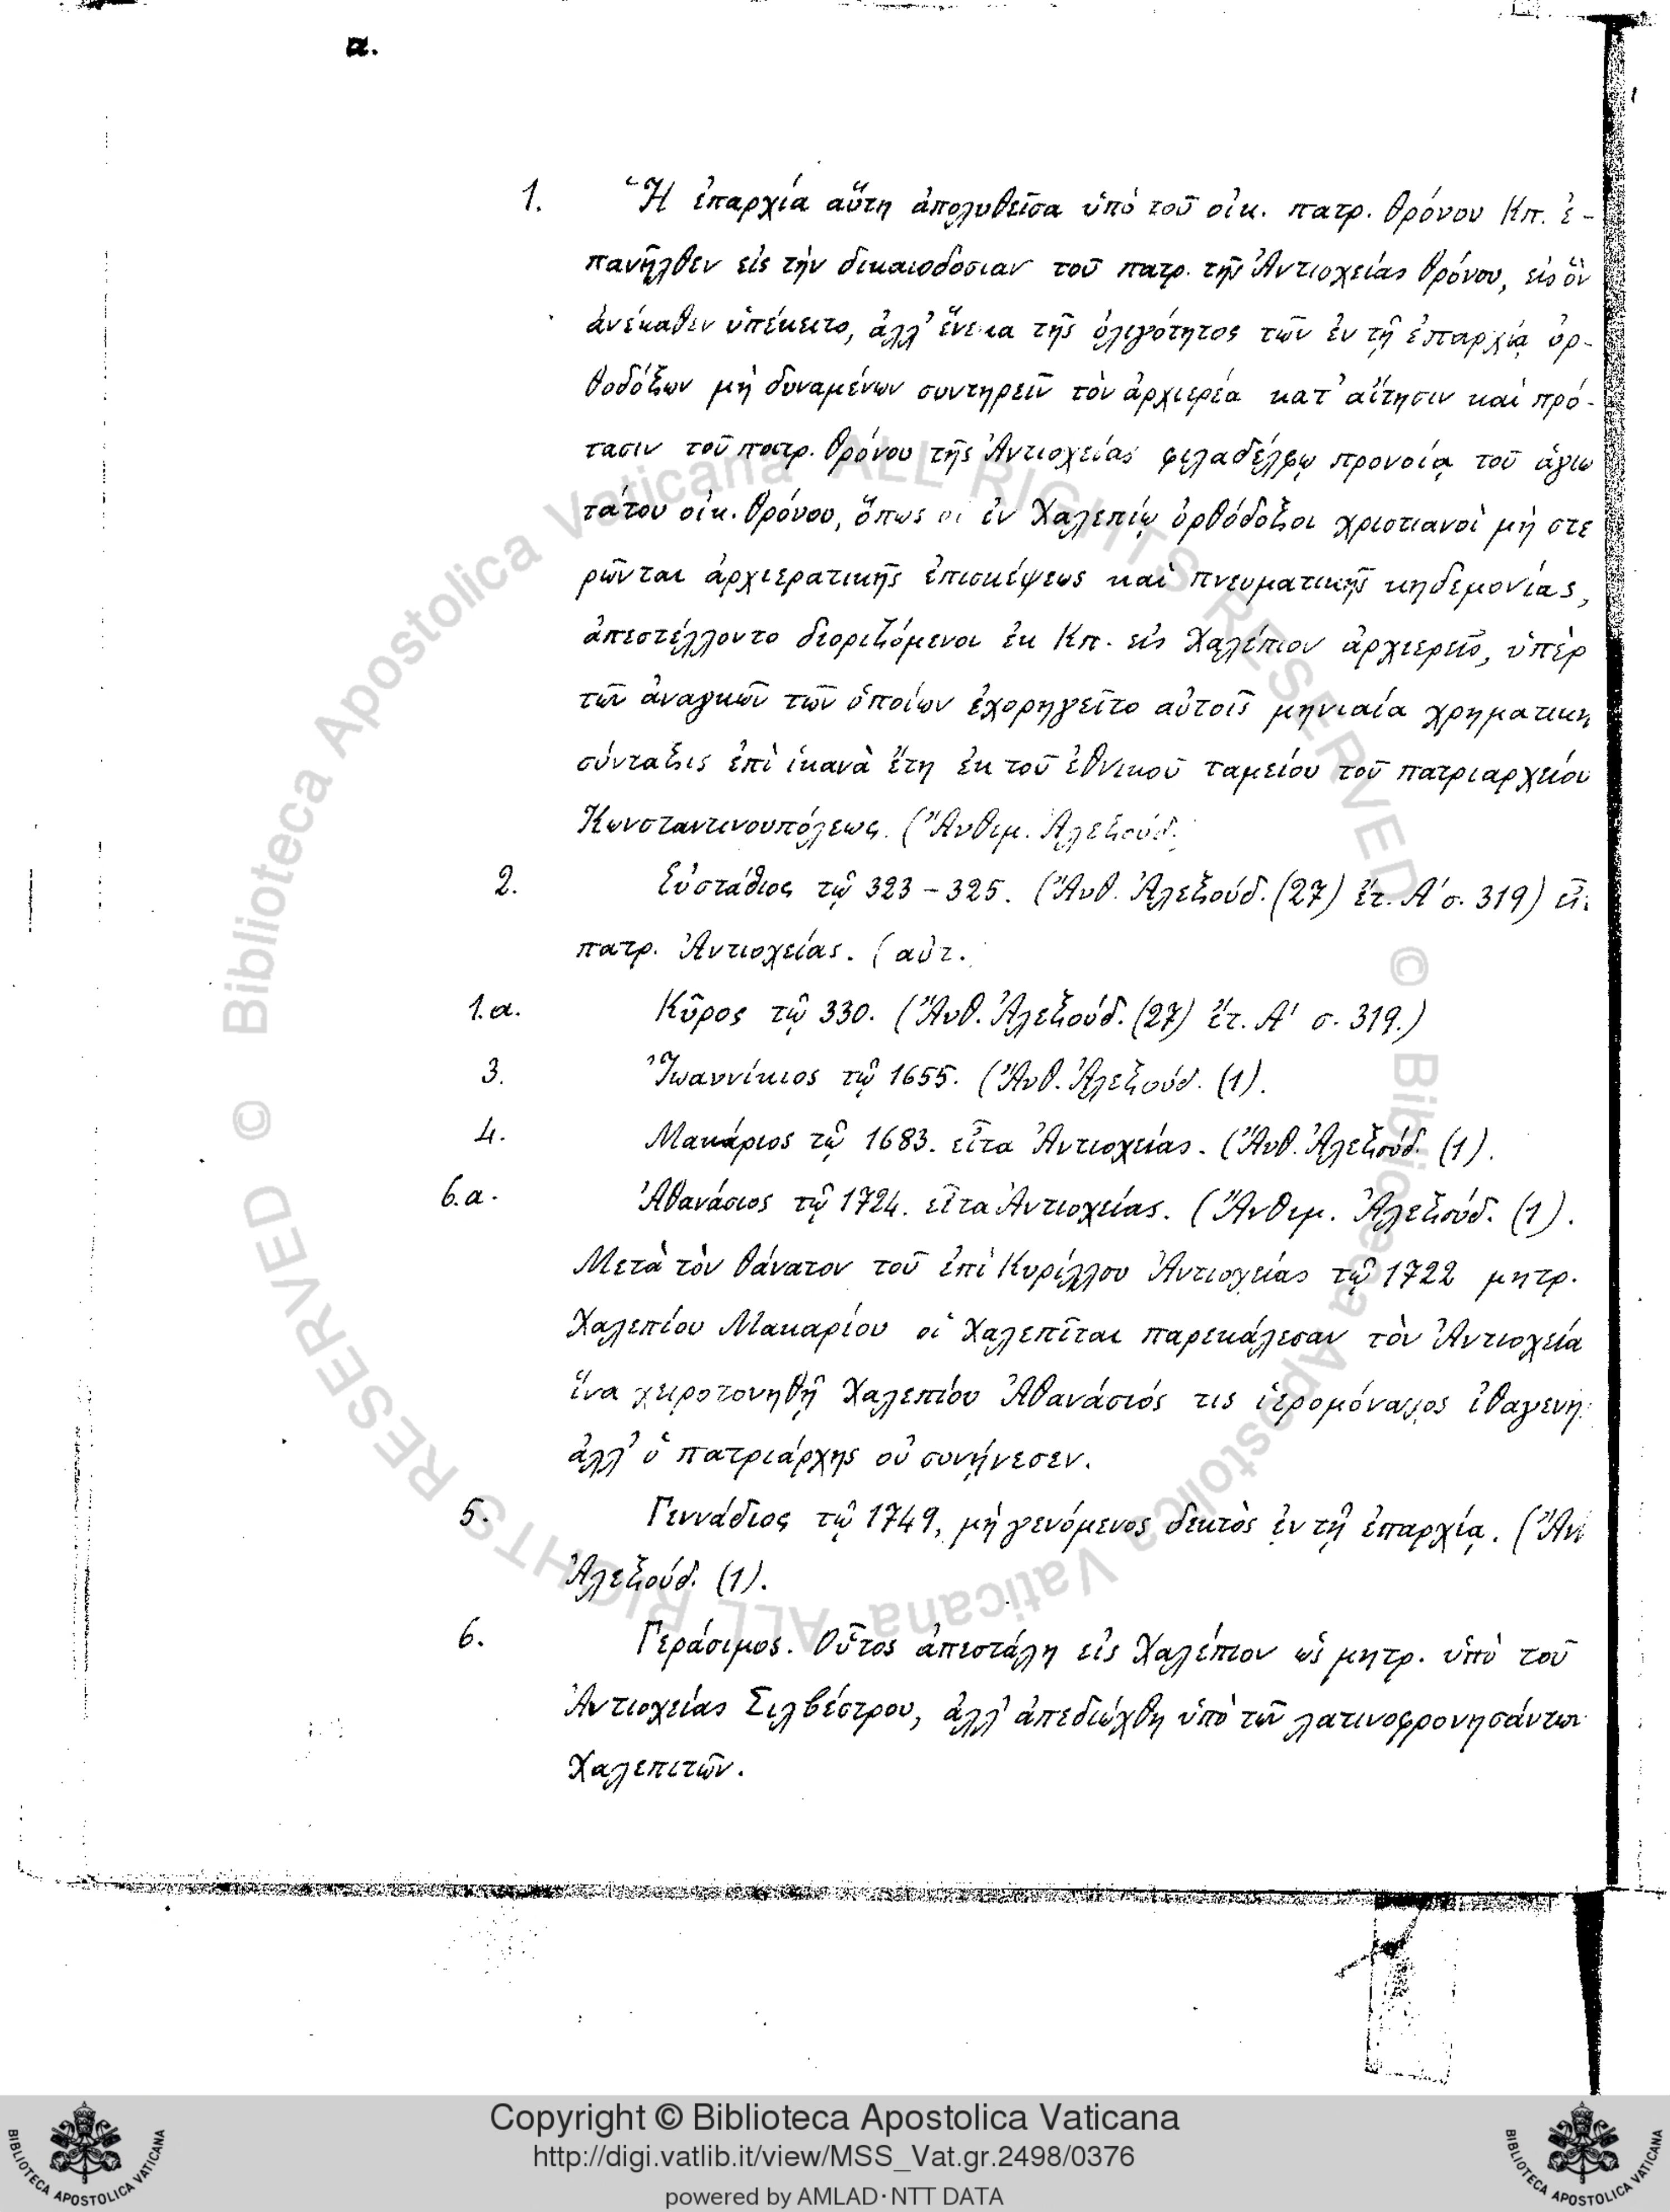 α.
1. Ἡ ἐπαρχία αὕτη ἀπολυθεῖσα ὑπὸ τοῦ οἰκ. πατρ. θρόνου Κπ. ἐ-
πανῆλθεν εἰς τὴν δικαιοδοσίαν τοῦ πατρ. τῆς Ἀντιοχείας θρόνου, εἰς ὃν
ἀνέκαθεν ὑπέκειτο, ἀλλ' ἕνεκα τῆς ὀλιγότητος τῶν ἐν τῇ ἐπαρχίᾳ ὀρ-
θοδόξων μὴ δυναμένων συντηρεῖν τὸν ἀρχιερέα κατ' αἴτησιν καὶ πρό-
τασιν τοῦ πατρ. θρόνου τῆς Ἀντιοχείας φιλαδέλφῳ προνοίᾳ τοῦ ἁγιω
τάτου οἰκ. θρόνου, ὅπως οἱ ἐν Χαλεπίῳ ὀρθόδοξοι χριστιανοὶ μὴ στε
ρῶνται ἀρχιερατικῆς ἐπισκέψεως καὶ πνευματικῆς κηδεμονίας,
ἀπεστέλλοντο διοριζόμενοι ἐκ Κπ. εἰς Χαλέπιον ἀρχιερεῖς, ὑπὲρ
τῶν ἀναγκῶν τῶν ὁποίων ἐχορηγεῖτο αὐτοῖς μηνιαία χρηματικη
σύνταξις ἐπὶ ἱκανὰ ἔτη ἐκ τοῦ ἐθνικοῦ ταμείου τοῦ πατριαρχείου
Κωνσταντινουπόλεως. (Ἄνθιμ. Ἀλεξούδ.
2. Εὐστάθιος τῷ 323 – 325. (Ἄνθ. Ἀλεξούδ. (27) ἔτ. Α' σ. 319)
πατρ. Ἀντιοχείας. (αὐτ.
1.α. Κῦρος τῷ 330. (Ἄνθ. Ἀλεξούδ. (27) ἔτ. Α' σ. 319.)
3. Ἰωαννίκιος τῷ 1655. (Ἄνθ. Ἀλεξούδ. (1).
4. Μακάριος τῷ 1683. εἶτα Ἀντιοχείας. (Ἄνθ. Ἀλεξούδ. (1).
6.α. Ἀθανάσιος τῷ 1724. εἶτα Ἀντιοχείας. (Ἄνθιμ. Ἀλεξούδ. (1).
Μετὰ τὸν θάνατον τοῦ ἐπὶ Κυρίλλου Ἀντιοχείας τῷ 1722 μητρ.
Χαλεπίου Μακαρίου οἱ Χαλεπῖται παρεκάλεσαν τὸν Ἀντιοχεία
ἵνα χειροτονηθῇ Χαλεπίου Ἀθανάσιός τις ἱερομόναχος ἰθαγενη
ἀλλ' ὁ πατριάρχης οὐ συνήνεσεν.
5. Γεννάδιος τῷ 1749, μὴ γενόμενος δεκτὸς ἐν τῇ ἐπαρχίᾳ. (Ἄν
Ἀλεξούδ. (1).
6. Γεράσιμος. Οὗτος ἀπεστάλη εἰς Χαλέπιον ὡς μητρ. ὑπὸ τοῦ
Ἀντιοχείας Σιλβέστρου, ἀλλ' ἀπεδιώχθη ὑπὸ τῶν λατινοφρονησάντων
Χαλεπιτῶν.
© Biblioteca Apostolica Vaticana ALL RIGHTS RESERVED © Biblioteca Apostolica Vaticana ALL RIGHTS RESERVED
Copyright © Biblioteca Apostolica Vaticana
http://digi.vatlib.it/view/MSS_Vat.gr.2498/0376
powered by AMLAD·NTT DATA
BIBLIOTECA APOSTOLICA VATICANA
BIBLIOTECA APOSTOLICA VATICANA